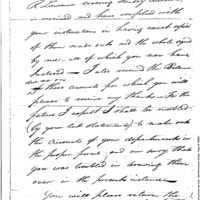 R Lawrence covering Sundry accounts
is received and have complied with
your instructions in having exact copies
of them made out and the whole signed
by me - all of which you now have
Inclosed - I also remand the Balance
of those accounts for which you will
please to receive my thanks - In the
future I expect I shall be enabled
(by your last statements) to make out
the accounts of your departments in
the proper form, and am sorry that
you was troubled in drawing them
over in the present instance
You will please return the